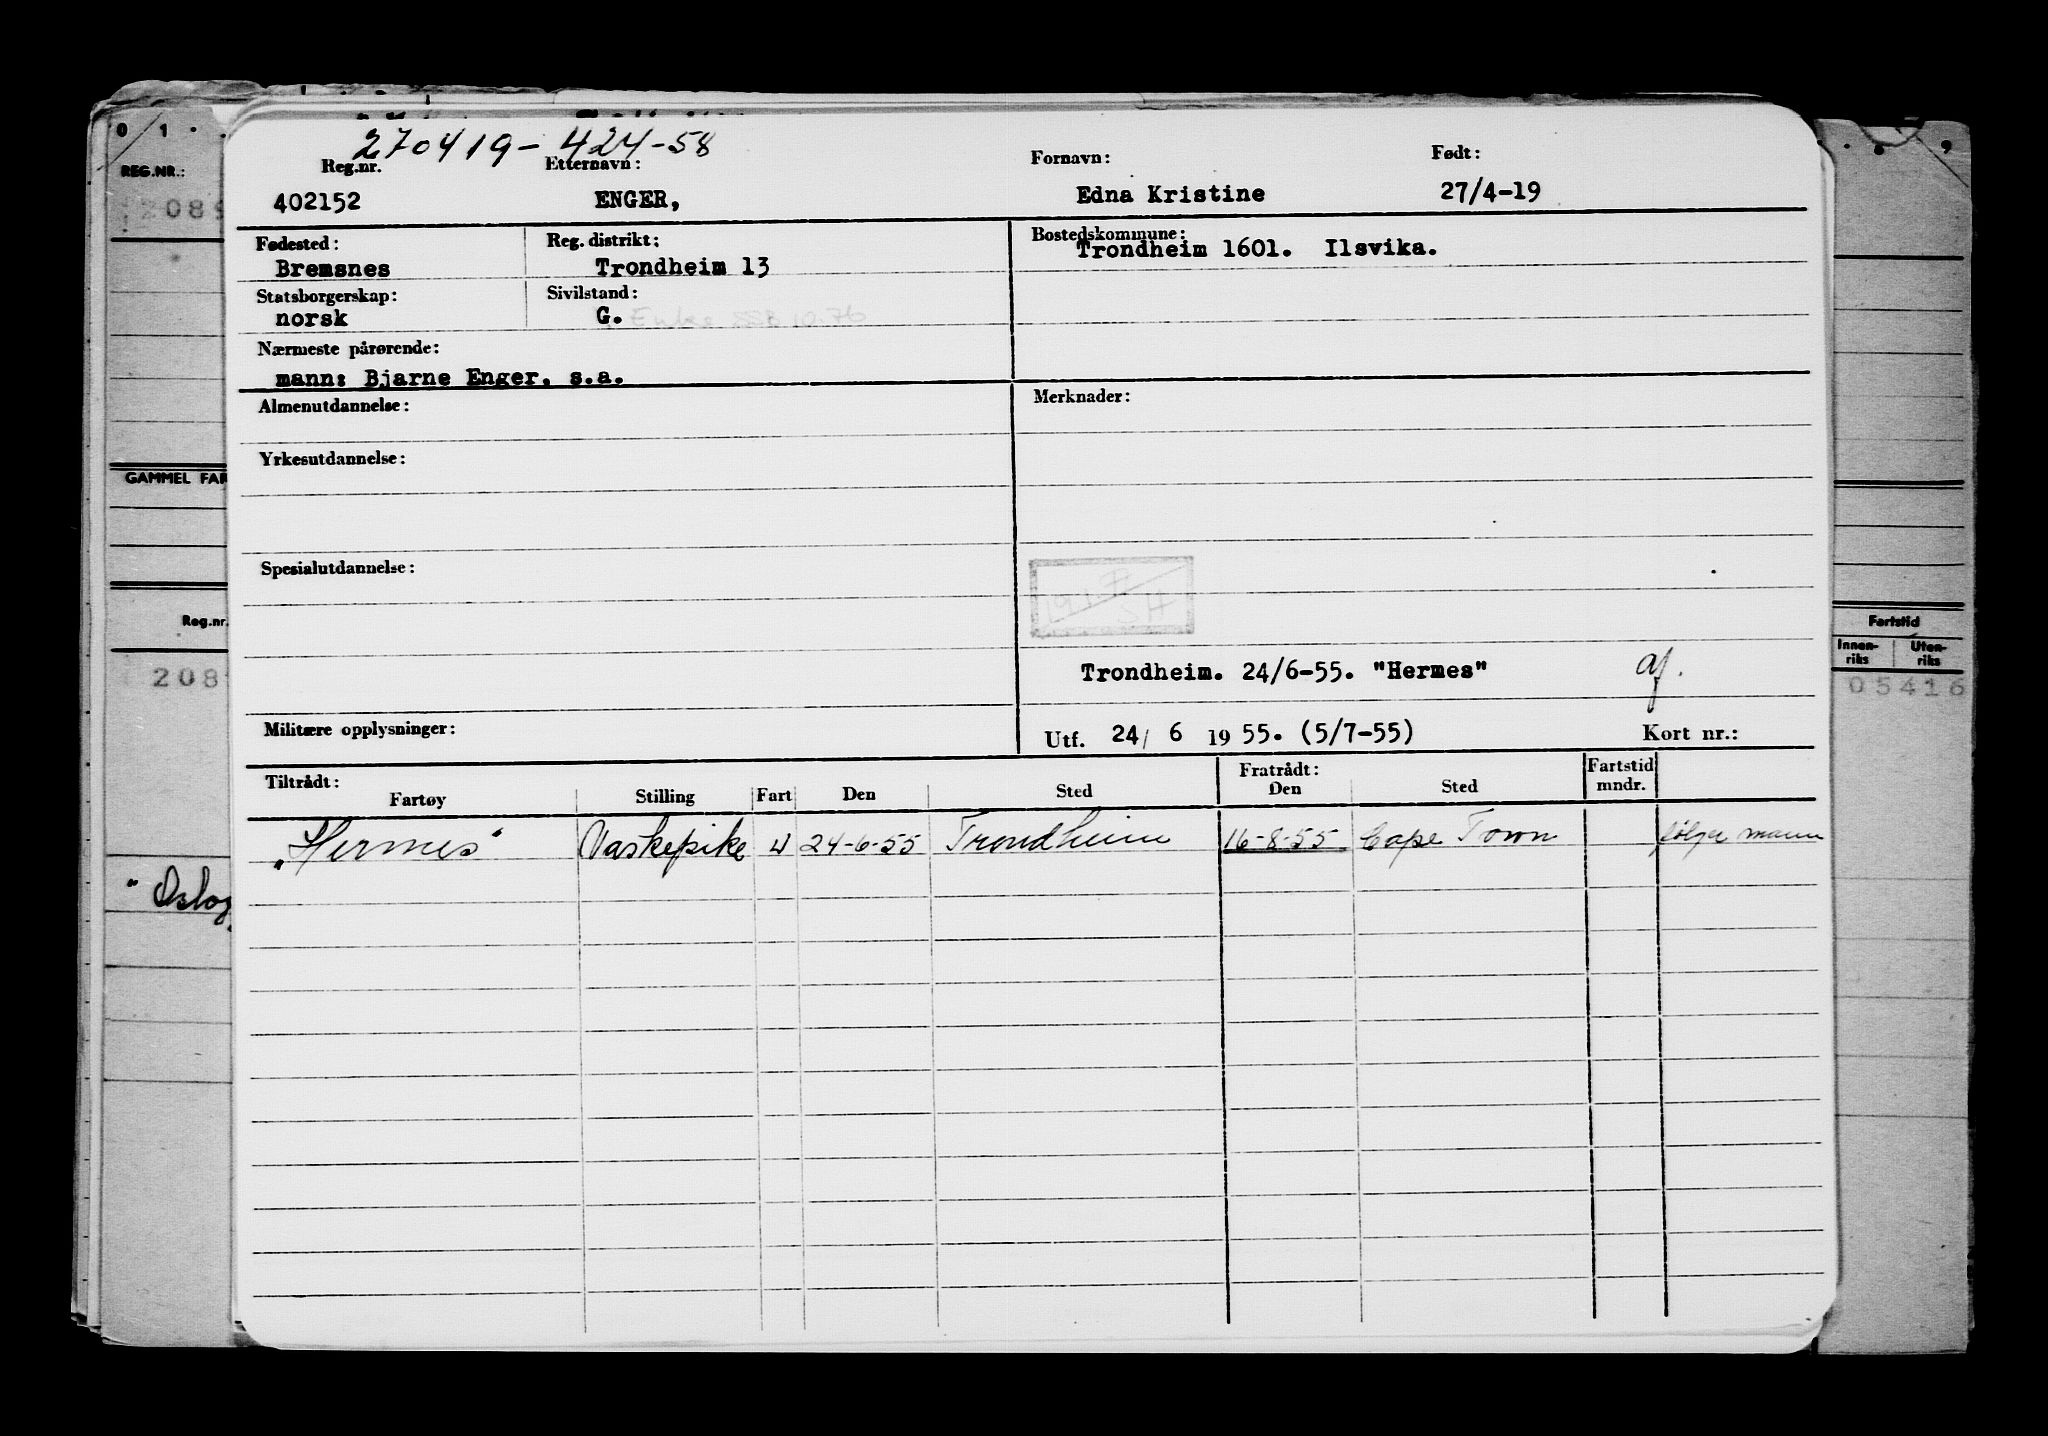 270419-424-58
Reg.nr. Etternavn: Fornavn: Født:
402152 ENGER, Edna Kristine 27/4-19
Fødested: Reg. distrikt: Bostedskommune:
Bremsnes Trondheim 13 Trondheim 1601. Ilsvika.
Statsborgerskap: Sivilstand:
norsk G. Enke SSB 10.76
Nærmeste pårørende:
mann: Bjarne Enger, s.a.
Almenutdannelse: Merknader:
Yrkesutdannelse:
Spesialutdannelse:
Trondheim. 24/6-55. "Hermes" af.
Militære opplysninger: Utf. 24/ 6 19 55. (5/7-55) Kort nr.:
Tiltrådt: Fratrådt: Fartstid
Fartøy Stilling Fart Den Sted Den Sted mndr.
"Hermes" Vaskepike U 24-6-55 Trondheim 16-8-55 Cape Town følger mann
0 1
REG.NR.:
GAMMEL FAR
Reg.nr.
208
"Oslo
8 9
Fartstid
Innen-riks Uten-riks
05416